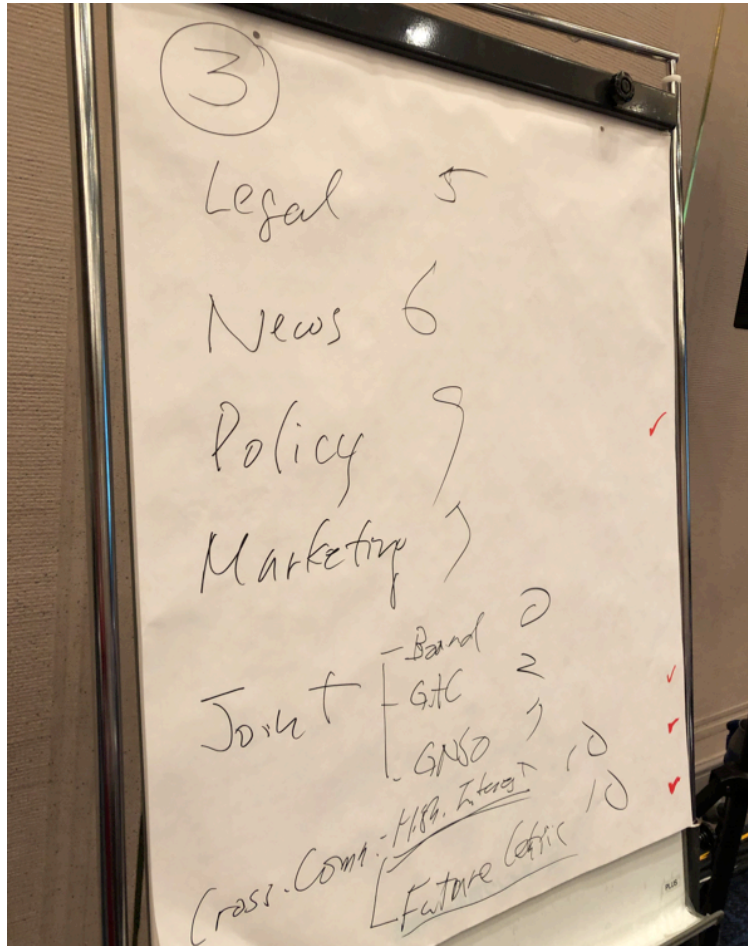 3
Legal 5
News 6
Policy 9
Marketing 7
Joint Board 0
GAC 2
GNSO 7
Cross.Comm.- High.Interest 10
Future 10
PLUS